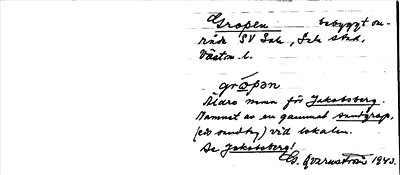 Gropen bebyggt om-
råde SV Sala, Sala stad,
Västm. l.
grópən
Äldre namn för Jakobsberg.
Namnet av en gammal sandgrop,
vid lokalen.
Se Jakobsberg!
G. Qvarnström 1943.